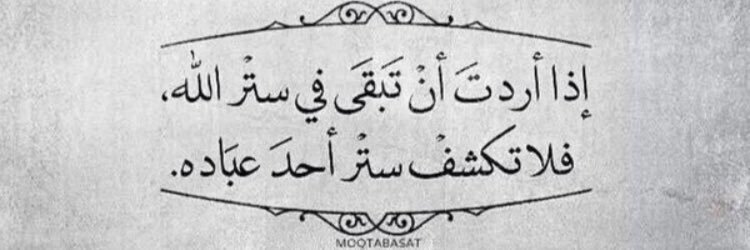 إذا أردتَ أنْ تَبقَى في ستْر الله،
فلا تكشفْ ستْر أحدَ عبَاده.
MOQTABASAT